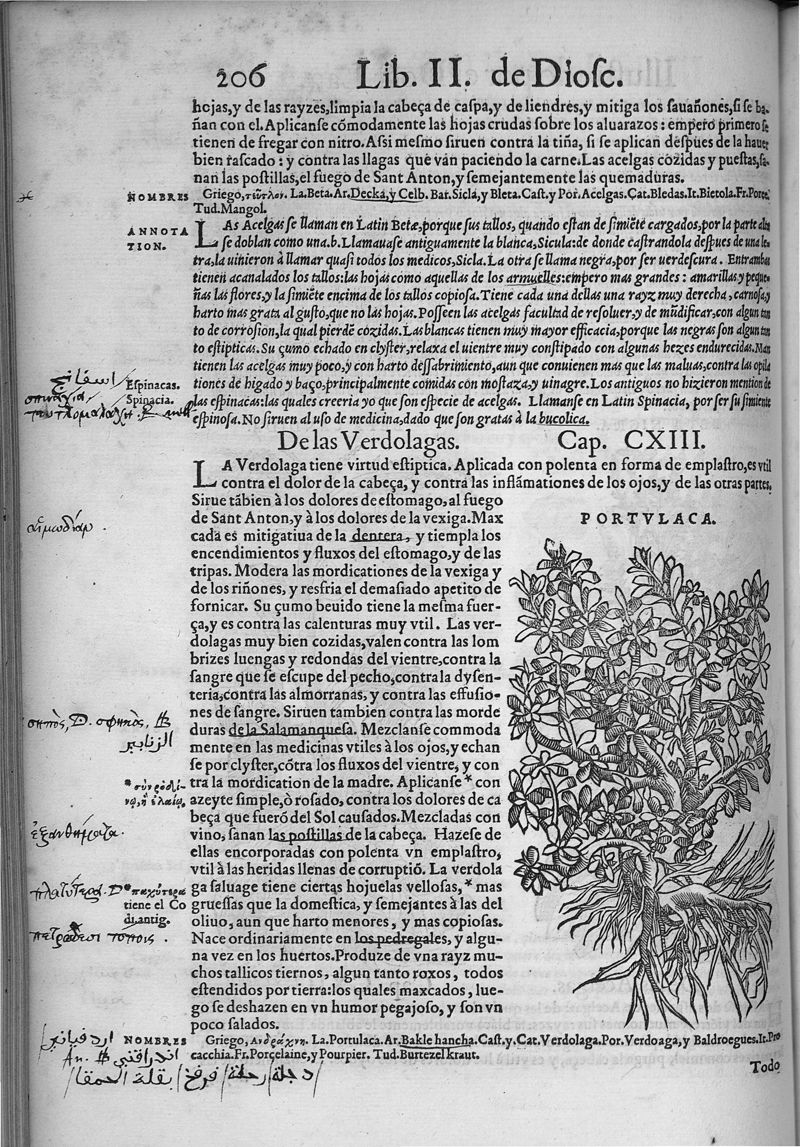 206 Lib. II. de Diosc.
hojas,y de las rayzes,limpia la cabeça de caspa,y de liendres,y mitiga los sauañones,si se ba,
ñan con el.Aplicanse cõmodamente las hojas crudas sobre los aluarazos: empero primero se
tienen de fregar con nitro.Assi mesmo siruen contra la tiña, si se aplican despues de la hauer
bien rascado: y contra las llagas que van paciendo la carne.Las acelgas cozidas y puestas,sa,
nan las postillas,el fuego de Sant Anton,y semejantemente las quemaduras.
NOMBRES Griego,τεῦτλον. La.Beta.Ar.Decka,y Celb. Bar.Sicla,y Bleta.Cast.y Por.Acelgas.Cat.Bledas.It.Bietola.Fr.Poree.
Tud.Mangol.
ANNOTA
TION.
LAs Acelgas se llaman en Latin Betæ,porque sus tallos, quando estan de simiẽte cargados,por la parte alta
se doblan como una.b.Llamauase antiguamente la blanca,Sicula:de donde castrandola despues de una le,
tra,la uinieron à llamar quasi todos los medicos,Sicla.La otra se llama negra,por ser uerdescura. Entrambas
tienen acanalados los tallos:las hojas como aquellas de los armuelles:empero mas grandes: amarillas,y peque,
ñas las flores,y la simiẽte encima de los tallos copiosa.Tiene cada una dellas una rayz muy derecha, carnosa,y
harto mas grata al gusto,que no las hojas.Posseen las acelgas facultad de resoluer,y de mũdificar,con algun tan
to de corrosion,la qual pierdẽ cozidas.Las blancas tienen muy mayor efficacia,porque las negras son algun tan
to estipticas.Su çumo echado en clyster,relaxa el uientre muy constipado con algunas hezes endurecidas.Man
tienen las acelgas muy poco,y con harto dessabrimiento,aun que conuienen mas que las maluas,contra las opila
tiones de higado y baço,principalmente comidas con mostaza,y uinagre.Los antiguos no hizieron mention de
las espinacas:las quales creeria yo que son especie de acelgas. Llamanse en Latin Spinacia, por ser su simiente
espinosa.No siruen al uso de medicina,dado que son gratas à la bucolica.
اسفانج
Espinacas.
Spinacia.
De las Verdolagas. Cap. CXIII.
LA Verdolaga tiene virtud estiptica. Aplicada con polenta en forma de emplastro,es vtil
contra el dolor de la cabeça, y contra las inflãmationes de los ojos,y de las otras partes.
Sirue tãbien à los dolores de estomago,al fuego
de Sant Anton,y à los dolores de la vexiga.Max
cada es mitigatiua de la dentera, y tiempla los
encendimientos y fluxos del estomago,y de las
tripas. Modera las mordicationes de la vexiga y
de los riñones, y resfria el demasiado apetito de
fornicar. Su çumo beuido tiene la mesma fuer-
ça,y es contra las calenturas muy vtil. Las ver-
dolagas muy bien cozidas,valen contra las lom
brizes luengas y redondas del vientre,contra la
sangre que se escupe del pecho,contra la dysen-
teria,contra las almorranas, y contra las effusio-
nes de sangre. Siruen tambien contra las morde
duras de la Salamanquesa. Mezclanse commoda
mente en las medicinas vtiles à los ojos,y echan
se por clyster,cõtra los fluxos del vientre, y con
tra la mordication de la madre. Aplicanse* con
azeyte simple,ò rosado, contra los dolores de ca
beça que fuerõ del Sol causados. Mezcladas con
vino, sanan las postillas de la cabeça. Hazese de
ellas encorporadas con polenta vn emplastro,
vtil à las heridas llenas de corruptiõ. La verdola
ga saluage tiene ciertas hojuelas vellosas,* mas
gruessas que la domestica, y semejantes à las del
oliuo, aun que harto menores, y mas copiosas.
Nace ordinariamente en los pedregales, y algu-
na vez en los huertos.Produze de vna rayz mu-
chos tallicos tiernos, algun tanto roxos, todos
estendidos por tierra:los quales maxcados, lue-
go se deshazen en vn humor pegajoso, y son vn
poco salados.
PORTVLACA.
αἱμωδίαν.
σηπὸς, D. σφηκὸς,
الزنابير
ἐξανθήματα.
πλατύτερα. D* παχύτερα
tiene el Co
di.antig.
πετρώδεσι τόποις.
NOMBRES Griego, Ανδράχνη. La.Portulaca.Ar.Bakle hancha.Cast.y.Cat.Verdolaga.Por.Verdoaga,y Baldroegues.It.Pro
cacchia.Fr.Porcelaine,y Pourpier. Tud.Burtezel kraut.
دجلة/رحلة/فرفخ/بقلة الحمقا
Todo